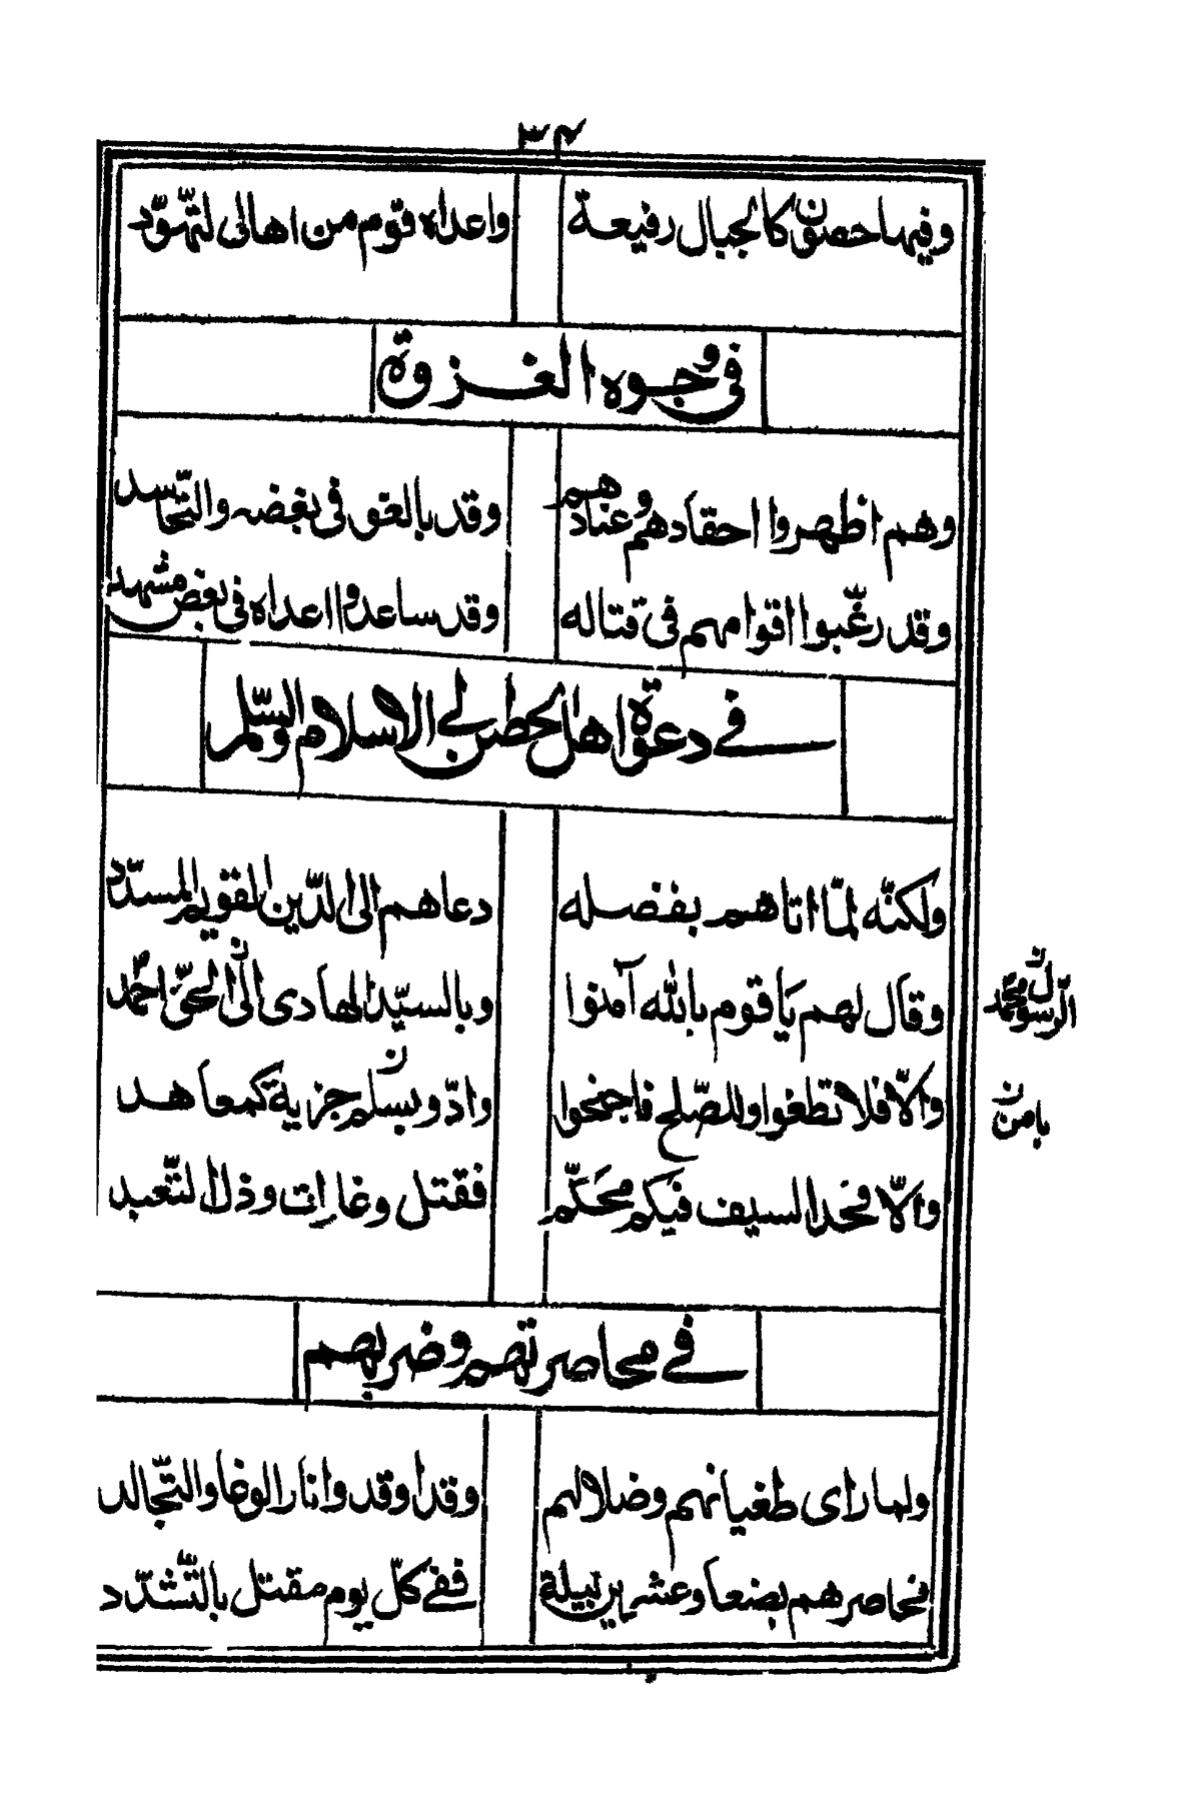 ۳۴
وفيها حصون كالجبال رفيعة واعداه قوم من اهالى لتهوّد
فى وجوه الغزوة
وهم اظهروا احقادهم وعنادهم وقد بالغو فى بغضه والتحاسد
وقد رغّبوا اقوامهم فى قتاله وقد ساعدوا اعداه فى بغض مشهد
فے دعوة اهل الحصن الے الاسلام والسّلم
ولكنّه لمّا اتاهم بفضله دعاهم الى الدّين القويم المسدّد
وقال لهم يا قوم بالله آمنوا وبالسيّد الهادى الى الحقّ احمد
الرسول محمد ن
والّا فلا تطغوا وللصّلح فاجنحوا وادّو بسلم جزية كمعاهد
بامن ن
والّا فحد السيف فيكم محكّم فقتل وغارات وذل لتعبد
فے محاصرتهم وضربهم
ولما راى طغيانهم وضلالهم وقد اوقدوا نار الوغا والتّجالد
فحاصرهم بضعا وعشرين ليلة ففے كلّ يوم مقتل بالتّشدّد